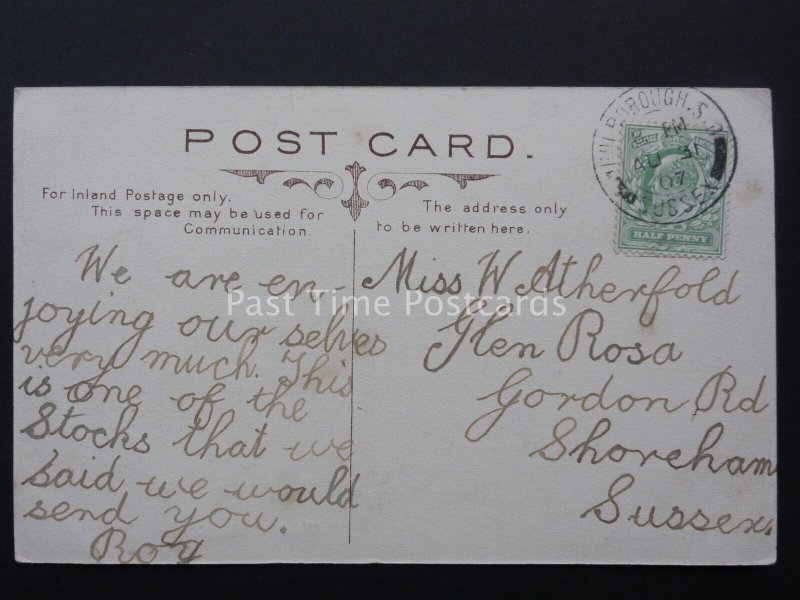 POST CARD.
For Inland Postage only.
This space may be used for
Communication.
The address only
to be written here.
BOROUGH. S.O
8 PM
AU 31
07
SUSSEX
HALF PENNY
We are en-
joying our selves
very much. This
is one of the
Stocks that we
said we would
send you.
Roy
Miss W Atherfold
Glen Rosa
Gordon Rd
Shoreham
Sussex.
Past Time Postcards